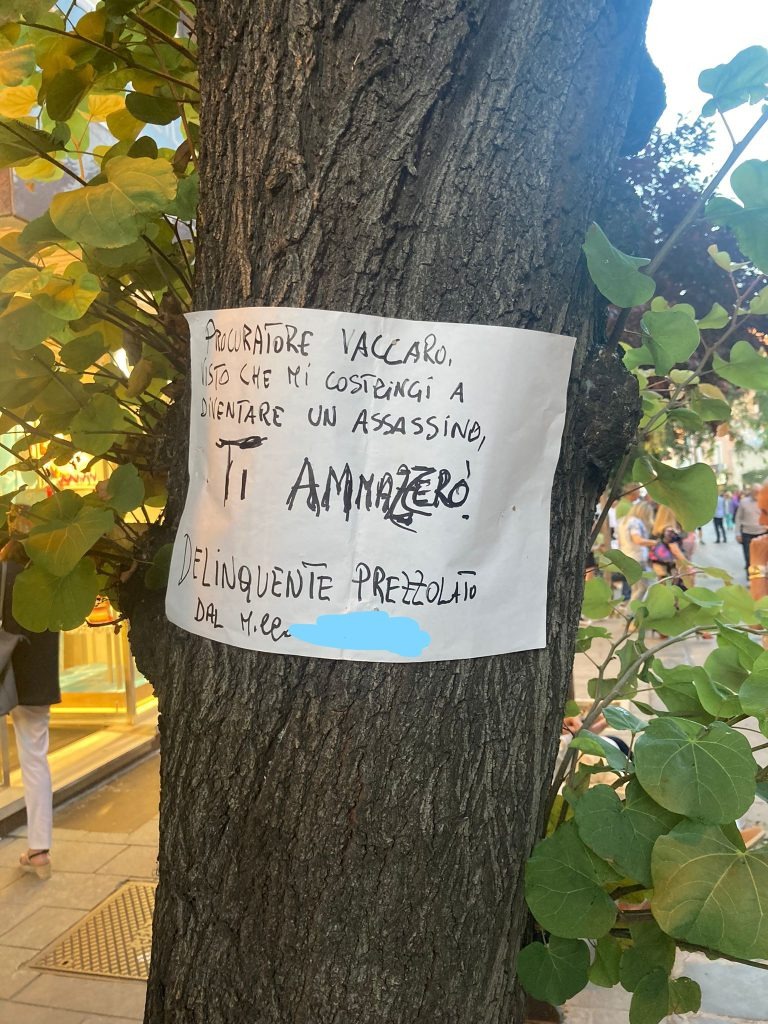 PROCURATORE VACCARO,
VISTO CHE MI COSTRINGI A
DIVENTARE UN ASSASSINO,
TI AMMAZZERÒ
DELINQUENTE PREZZOLATO
DAL